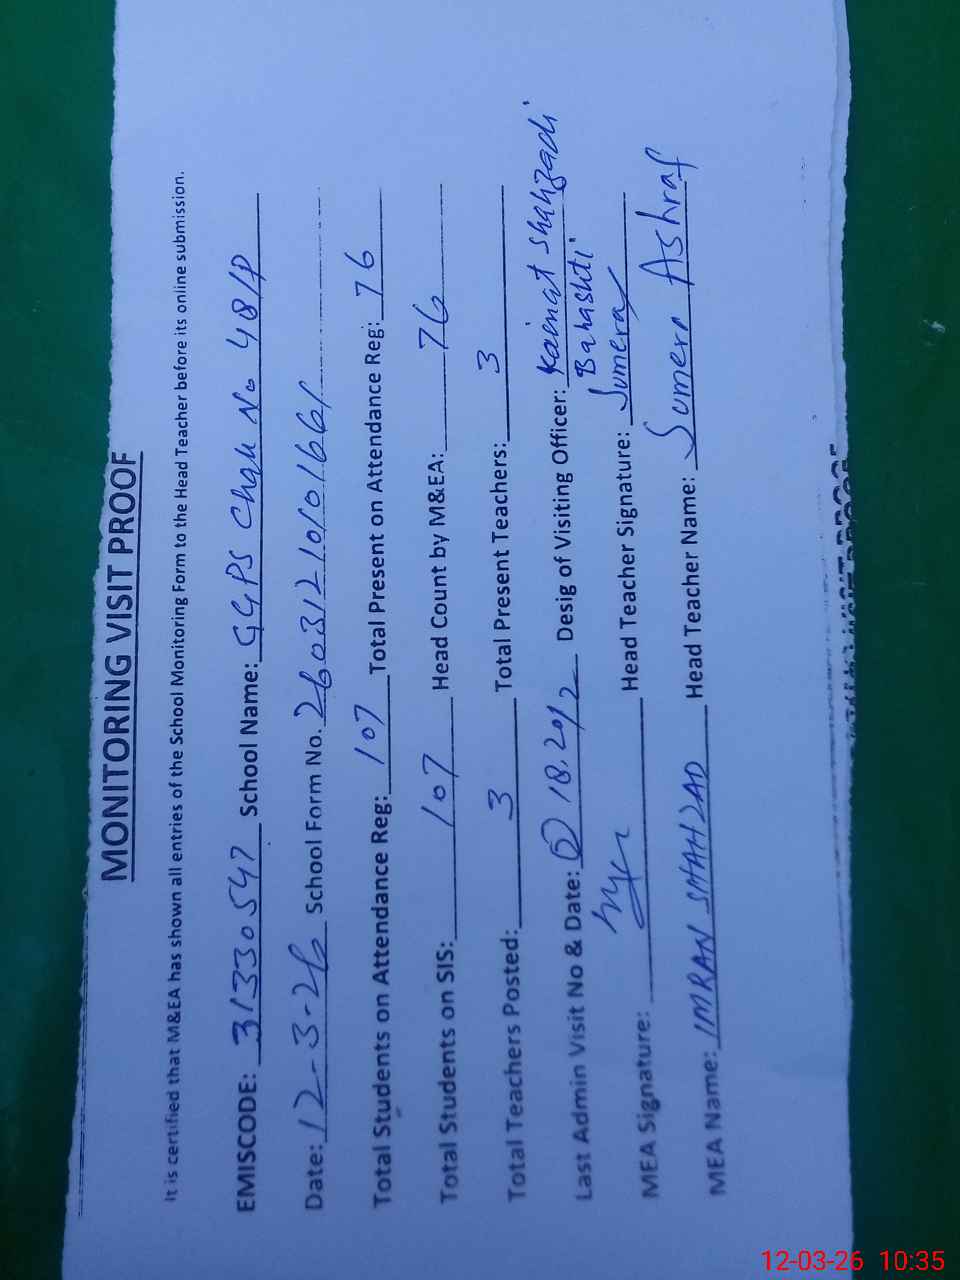 MONITORING VISIT PROOF
It is certified that M&EA has shown all entries of the School Monitoring Form to the Head Teacher before its online submission.
EMISCODE: 31330547 School Name: GGPS Chak No 48/P
Date: 12-3-26 School Form No. 26031210101661
Total Students on Attendance Reg: 107 Total Present on Attendance Reg: 76
Total Students on SIS: 107 Head Count by M&EA: 76
Total Teachers Posted: 3 Total Present Teachers: 3
Last Admin Visit No & Date: Desig of Visiting Officer: Kainat Shahzadi
Bahashti
MEA Signature: Head Teacher Signature: Sumera
MEA Name: IMRAN SHAHZAD Head Teacher Name: Sumera Ashraf
12-03-26 10:35